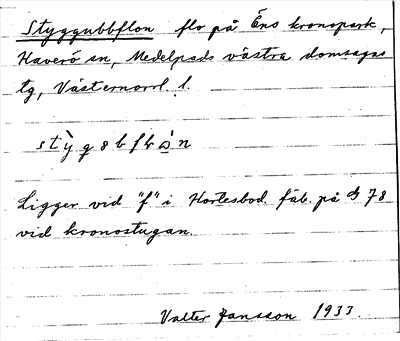 Styggubbflon flo på Ens kronopark,
Haverö sn, Medelpads västra domsagas
tg, Västernorrl. l.
Ligger vid "f" i Hortesbod. fäb. på 78
vid kronostugan
Valter Jansson 1933.